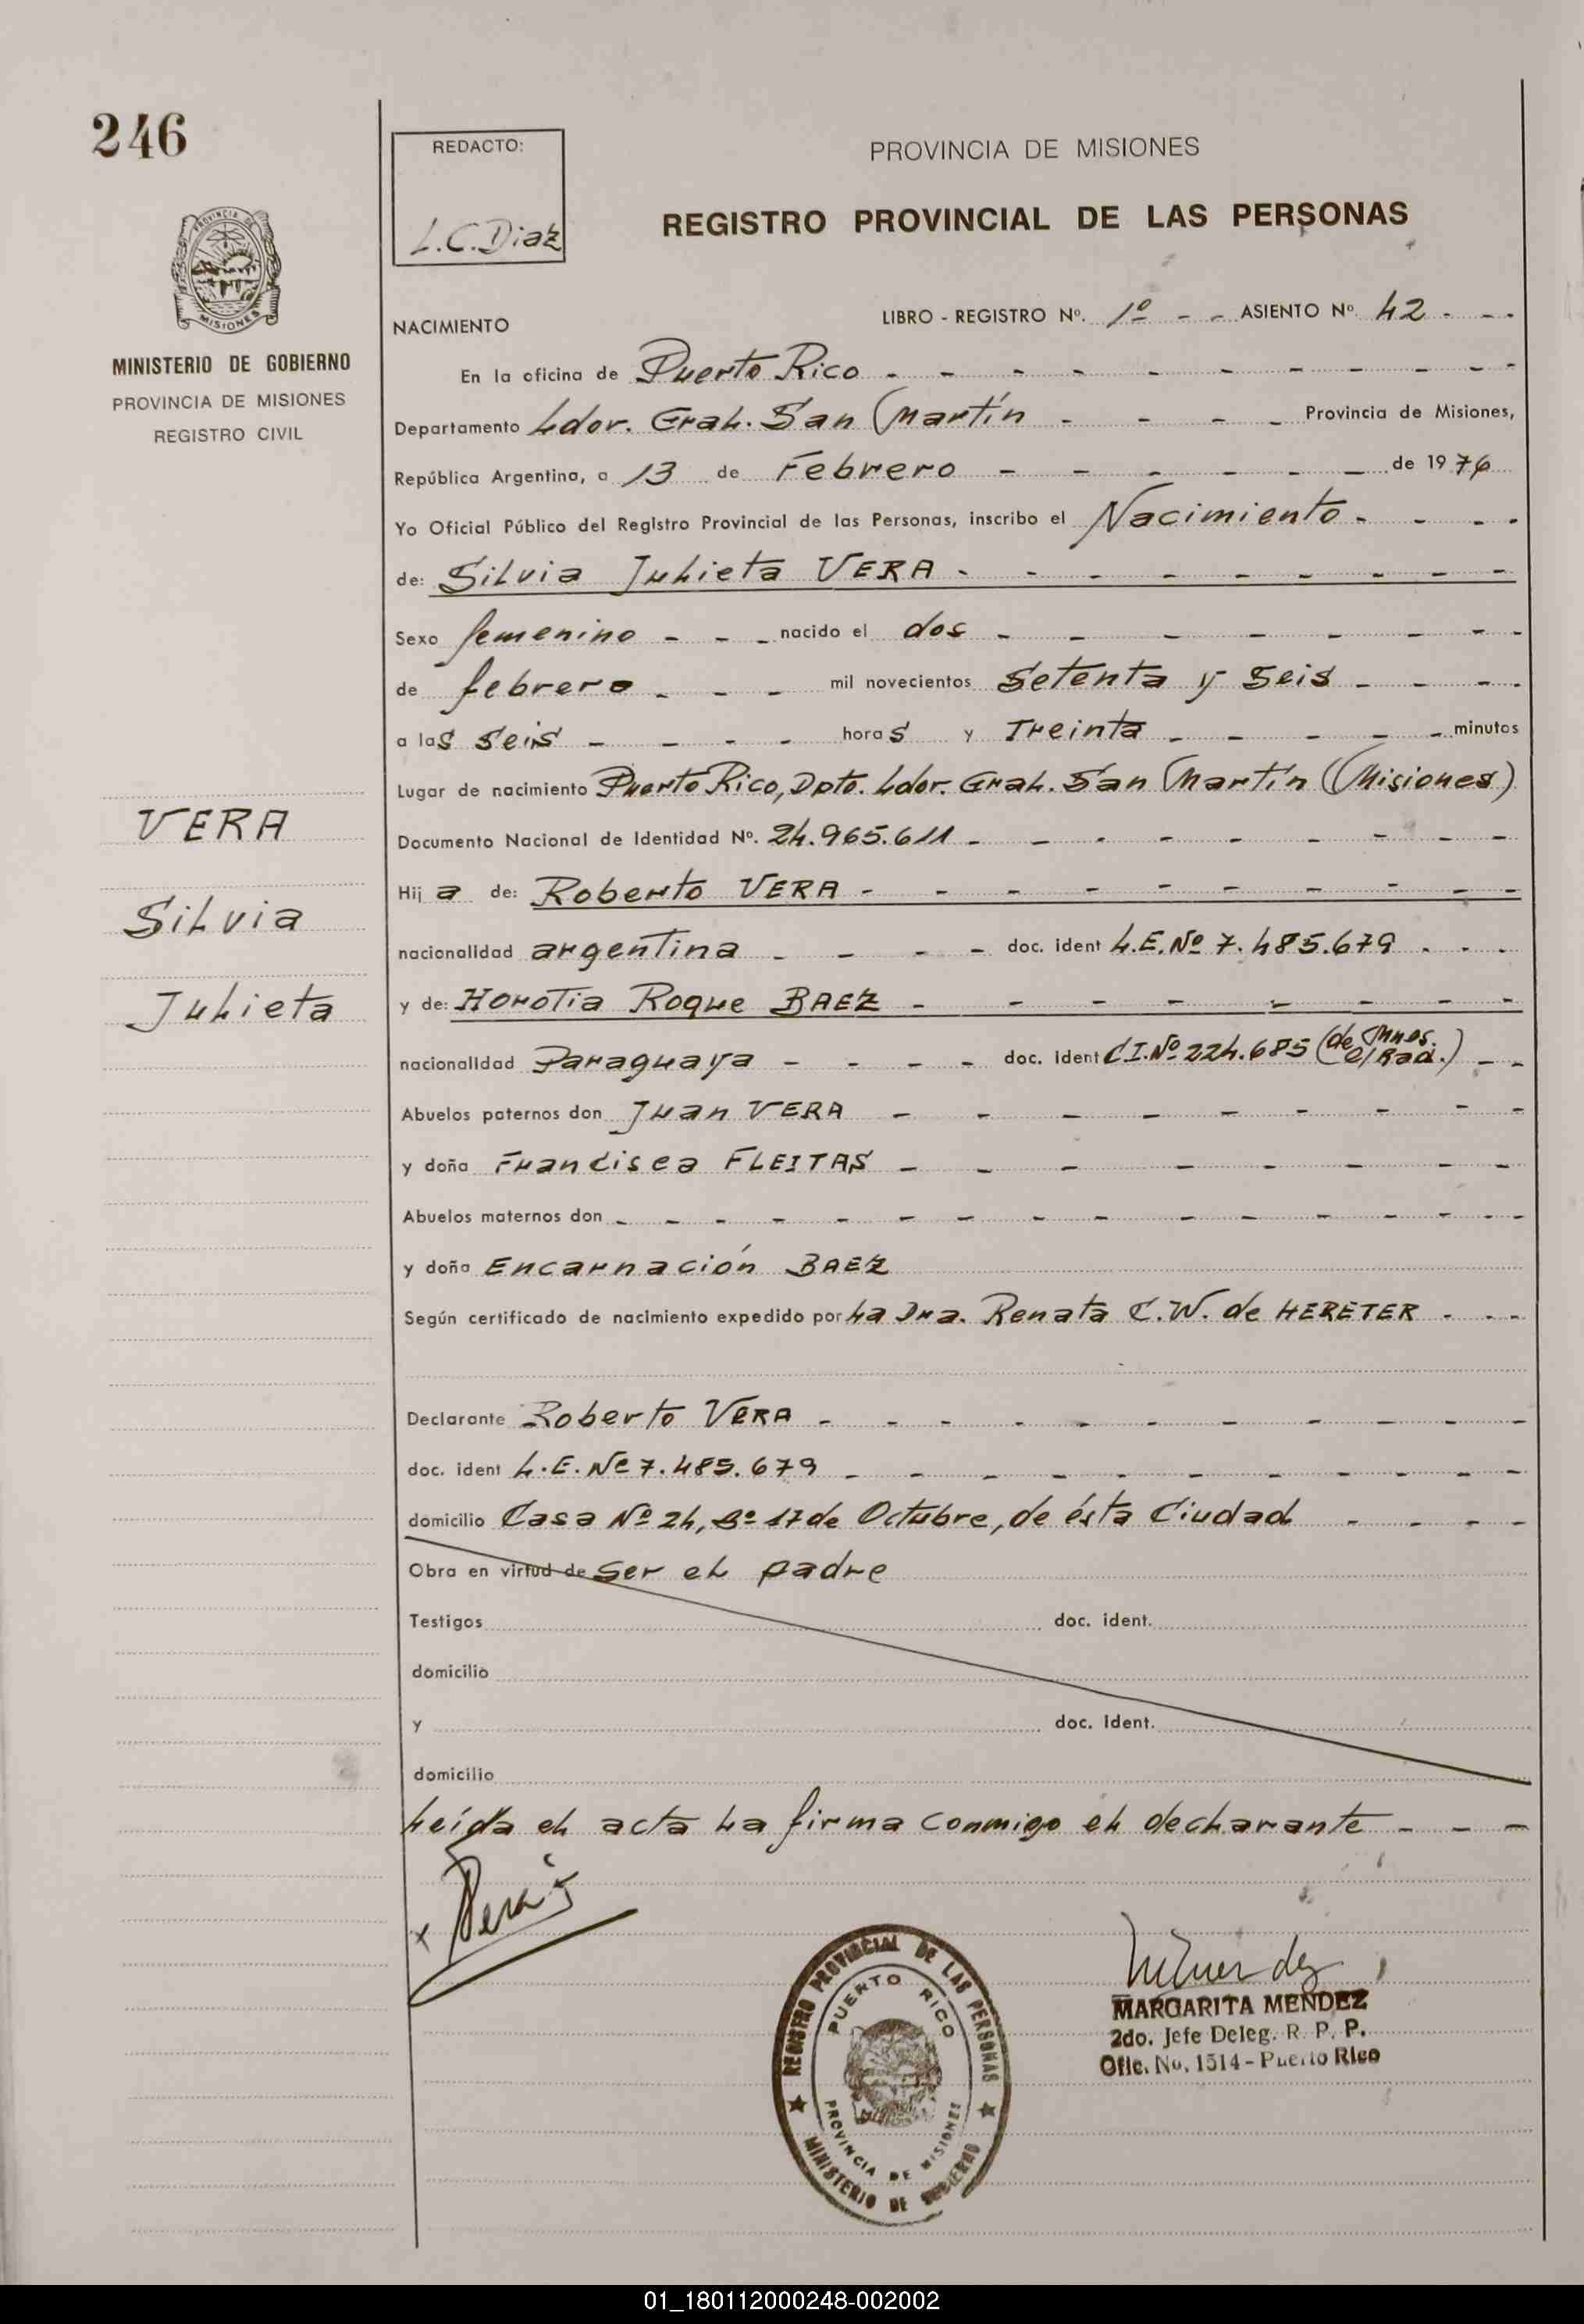 246
REDACTO:
L.C. Diaz
PROVINCIA DE MISIONES
REGISTRO PROVINCIAL DE LAS PERSONAS
PROVINCIA DE
MISIONES
MINISTERIO DE GOBIERNO
PROVINCIA DE MISIONES
REGISTRO CIVIL
NACIMIENTO
LIBRO - REGISTRO Nº. 1º - - ASIENTO Nº. 42 - - -
En la oficina de Puerto Rico - - - - - - - - -
Departamento Ldor. Gral. San Martín - - - - Provincia de Misiones,
República Argentina, a 13 de Febrero - - - - - - de 1976
Yo Oficial Público del Registro Provincial de las Personas, inscribo el Nacimiento - - - -
de: Silvia Julieta VERA - - - - - - - - -
Sexo femenino - - - nacido el dos - - - - - - - -
de febrero - - - mil novecientos setenta y seis - - - -
a las seis - - - - horas y Treinta - - - - - minutos
Lugar de nacimiento Puerto Rico, Dpto. Ldor. Gral. San Martín (Misiones)
Documento Nacional de Identidad Nº. 24.965.611 - - - - - - - - -
Hija de: Roberto VERA - - - - - - - - - -
nacionalidad argentina - - - - doc. ident L.E. Nº 7.485.679 - - -
y de: Horotia Roque BAEZ - - - - - - - -
nacionalidad Paraguaya - - - - doc. ident C.I. Nº 224.685 (de Mnes. c/Rad.) - -
Abuelos paternos don Juan VERA - - - - - - - - -
y doña Francisca FLEITAS - - - - - - - -
Abuelos maternos don - - - - - - - - - - - - - -
y doña Encarnación BAEZ
Según certificado de nacimiento expedido por La Dra. Renata C.W. de HERETER - - -
Declarante Roberto VERA - - - - - - - - - -
doc. ident L.E. Nº 7.485.679 - - - - - - - - - -
domicilio Casa Nº 24, Bº 17 de Octubre, de ésta Ciudad - - - -
Obra en virtud de ser el padre
Testigos doc. ident.
domicilio
y doc. ident.
domicilio
Leída el acta la firma conmigo el declarante - - -
VERA
Silvia
Julieta
x Vera
REGISTRO PROVINCIAL DE LAS PERSONAS
PUERTO RICO
PROVINCIA DE MISIONES
MINISTERIO DE GOBIERNO
MARGARITA MENDEZ
2do. Jefe Deleg. R. P. P.
Ofic. No. 1514 - Puerto Rico
01_180112000248-002002